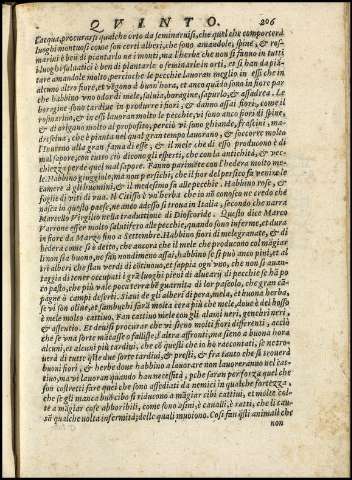 QVINTO. 206
l'acqua, procurarsi qualche orto da seminarvisi, che quel che comporterà
luoghi montuosi come son certi alberi, che sono amandole, spine, & ros-
marini è ben di piantarle ne i monti, ma l'herbe che non si fanno in tutti
luoghi saluatici è ben di piantarle o seminarle in orti, et si han da pian
tare amandole molto, percioche le pecchie lauoran meglio in essi che in
alcuno altro fiore, et uegono d'buon hora, et anco quādo sono in fiore par
che habbino uno odor di mele, saluia, boragine, sapurlo, & assadrea. Le
boragine sono tardiue in produrre i fiori, & danno assai fiori, come il
rosmarino, & in essi lauoran molto le pecchie, vi sono anco fiori di spine,
& di origano molto al proposito, perciò vi sono ghiande, frassini, ma-
dreselua; che è pianta nel qual gran tempo lauorano, & soccorre molto
l'Inuerno alla gran fama di esse, & il mele che di esso producono è di
mal sapore, con tutto ciò dicono gli esperti, che con la antichità, & vec-
chiezze perde quel mal sapore. Fanno parimente con l'hedera molto me-
le. Habbino giuggiole, ma non persichi, che il fior del persico fa venir le
camere à gli huomini, & il medesimo fa alle pecchie. Habbino rose, &
foglie di viti di vua. Il Ciusso è vn'herba che io nō conosco ne credo che
nasca in questo paese, ne meno adesso si troua in Italia, secondo che narra
Marcello Virgilio nella traduttione di Dioscoride. Questo dice Marco
Varrone esser molto salutifero alle pecchie, quando sono inferme, et dura
in fiore da Marzo sino a Settembre. Habbino fiori di melegranate, & di
hedera come si è detto, che ancora che il mele che producono col māgiar
li non sia buono, ne sān nondimeno assai, habbino se si può anco pini, et al
tri alberi che stan verdi di cōtinouo, et sappia ogn' vno, che non si auan-
taggia di tener occupati i grā luoghi pieni di aluearij di pecchie se hā po
co pasto, che più vale poca terra bē guarnita di lor pascolo, che gran cā-
pagne ò campi deserti. Siaui de gli alberi di pera, mela, et buona herba,
se vi son oliue, et sambuchi farā molta cera più che mele, doue è del bosso
è mele molto cattiuo. Fan cattiuo mele con gli alani neri, genebri neri,
& assentio. Et deuesi procurar che vi sieno molti fiori differenti, acciò
che se vna sorte mācasse o fallisse l'altra assroni, ma sieno a buona hora
alcuni, et alcuni più tardiui, che cō questi che io ho raccontati, se netro-
uerà di tutte q̄ste due sorte tardiui, & presti, & fra tanto che si trouerā
buoni fiori, & herbe doue habbino a lauorare non lauoreranno nel cat-
tiuo, ma vi lauoran quando han necessità, pche saran per forza quel che
son costretti fare quei che sono assediati da nemici in qualche fortezza,
che se gli manca buō cibo si riducono a māgiar cibi cattiui, et molte uol-
te a māgiar cose abboribili, come sono asini, ò caualli, ò ratti, che li cau-
sano qualche uolta infermità, delle quali muoiono. Così fan q̄sti animali che
non